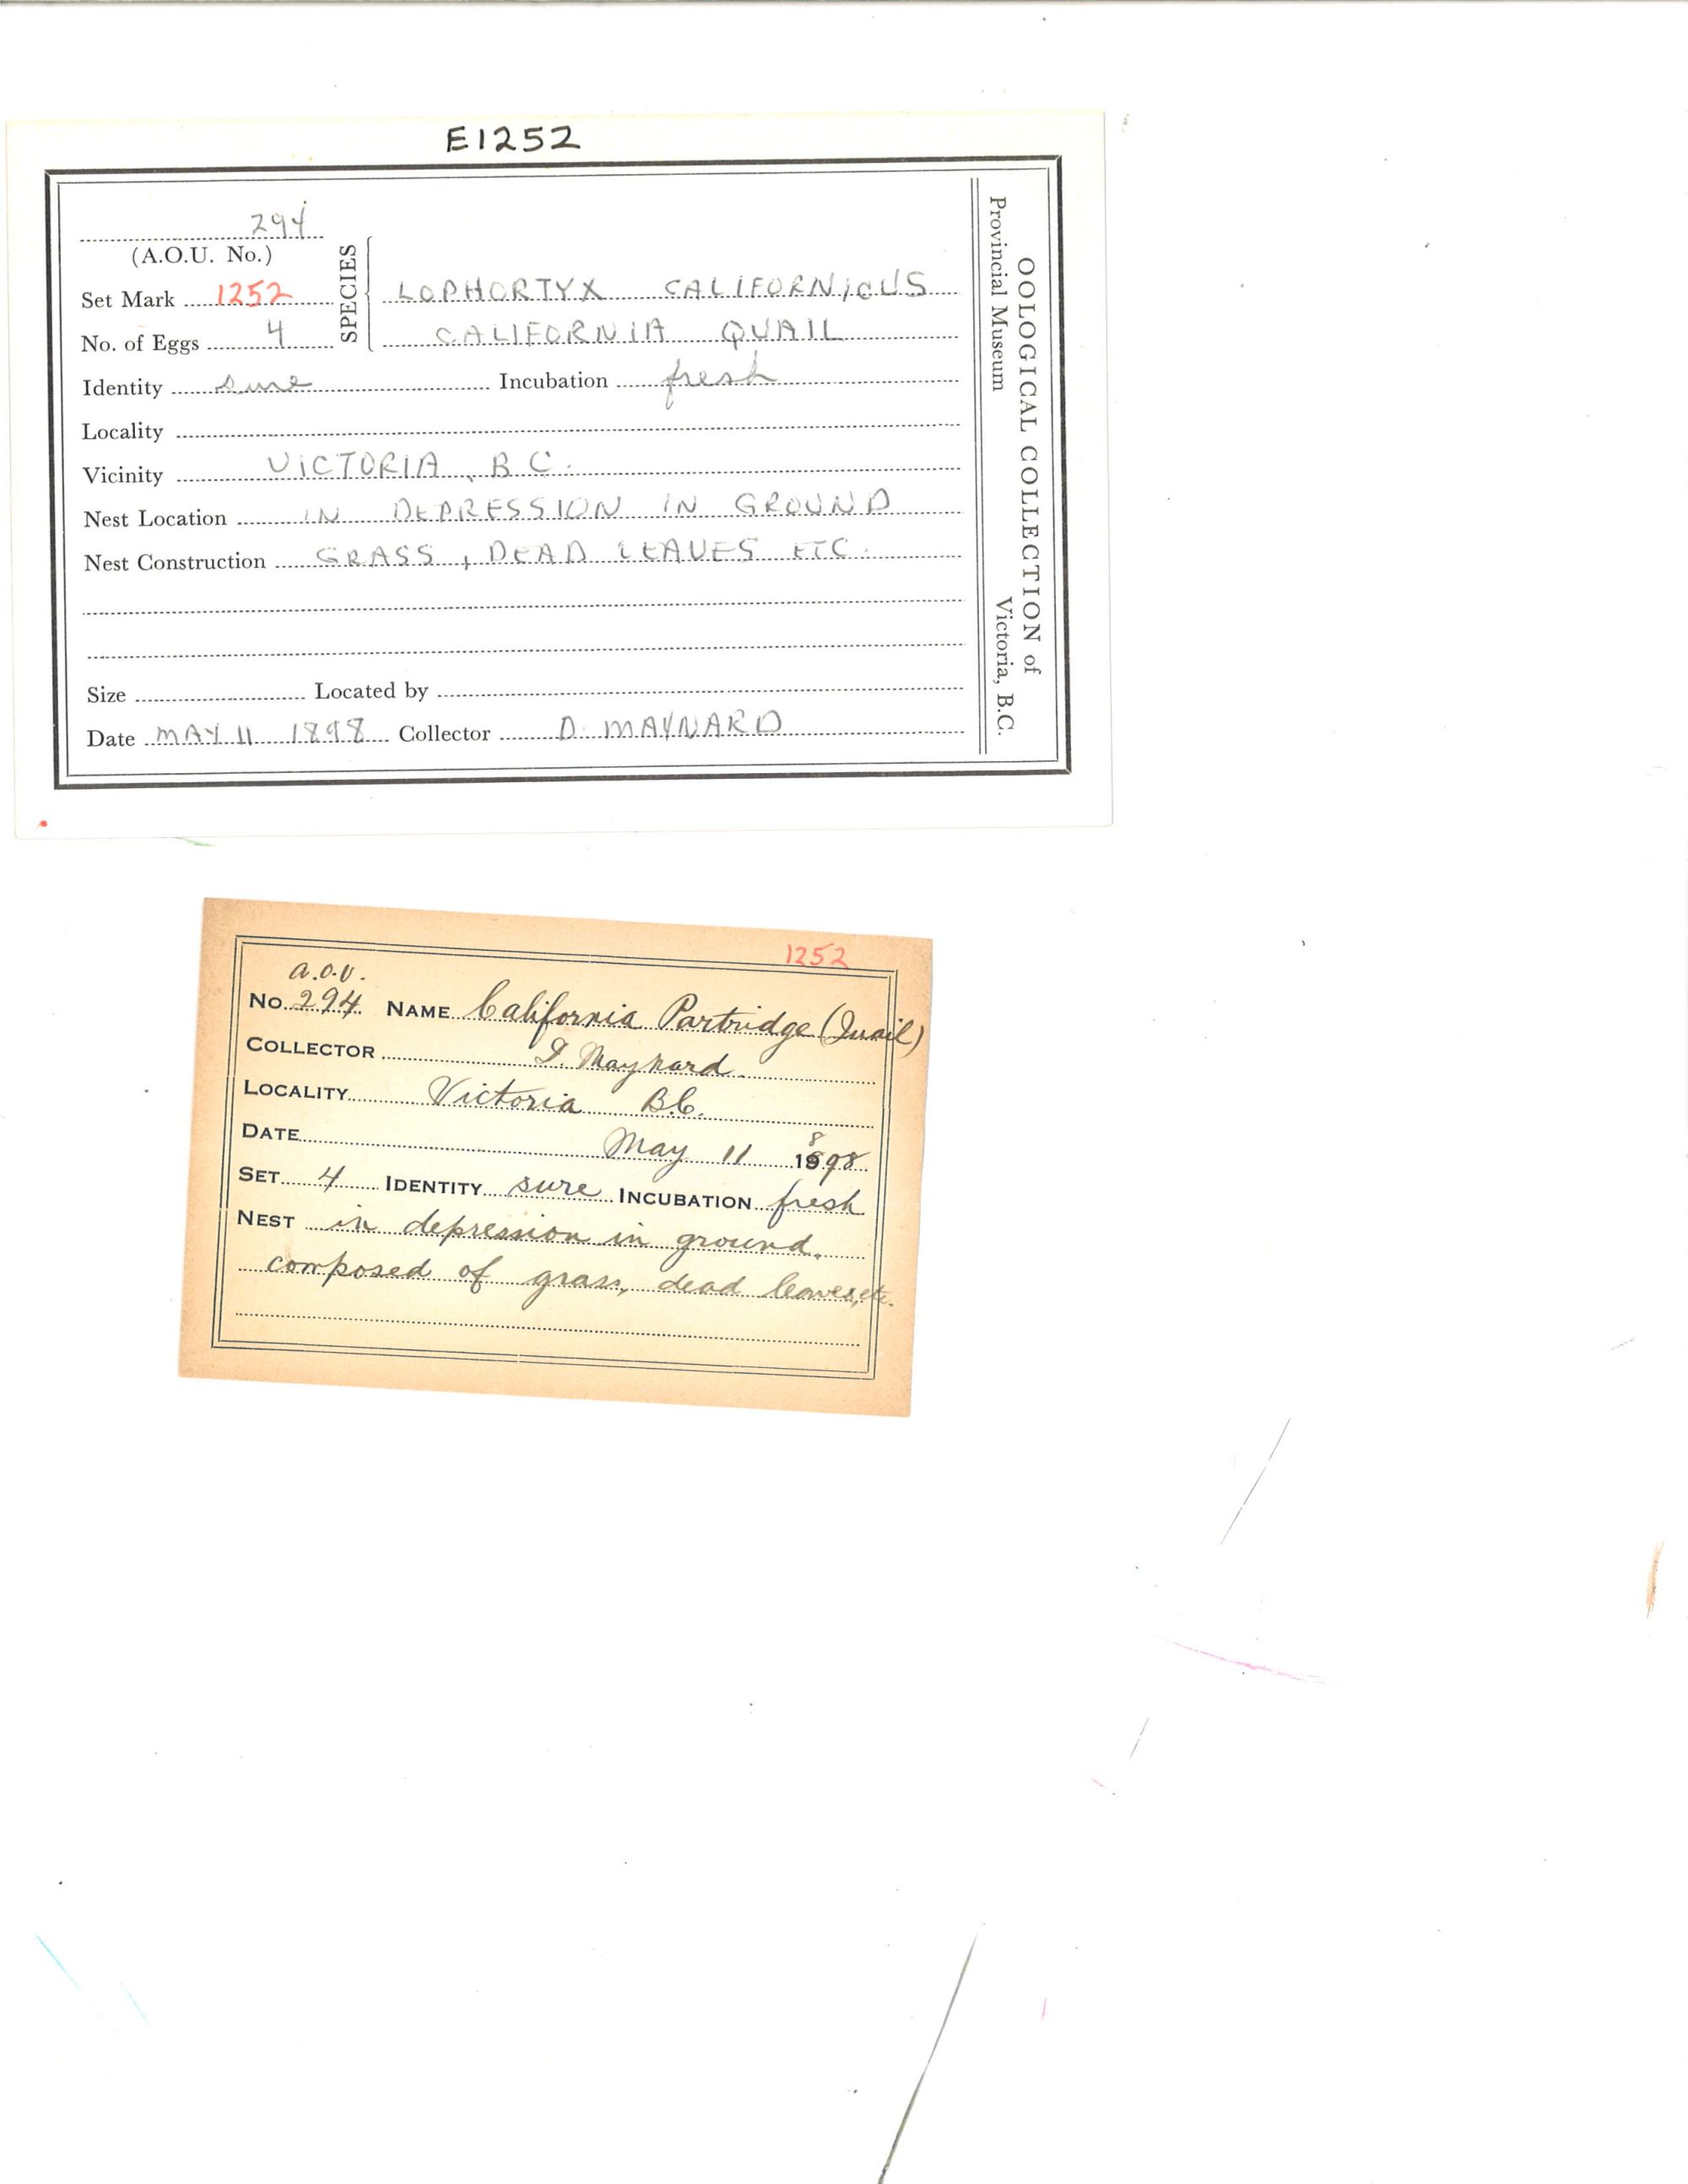 E1252
294
(A.O.U. No.)
Set Mark 1252
No. of Eggs 4
SPECIES
LOPHORTYX CALIFORNICUS
CALIFORNIA QUAIL
Identity sure Incubation fresh
Locality
Vicinity VICTORIA, B C.
Nest Location IN DEPRESSION IN GROUND
Nest Construction GRASS, DEAD LEAVES ETC.
Size Located by
Date MAY 11 1898 Collector D. MAYNARD
OOLOGICAL COLLECTION of
Provincial Museum Victoria, B.C.
1252
a.o.u.
No. 294 NAME California Partridge (Quail)
COLLECTOR Maynard.
LOCALITY Victoria B.C.
DATE May 11 1898
SET 4 IDENTITY sure INCUBATION fresh
NEST in depression in ground.
composed of grass, dead leaves, etc.